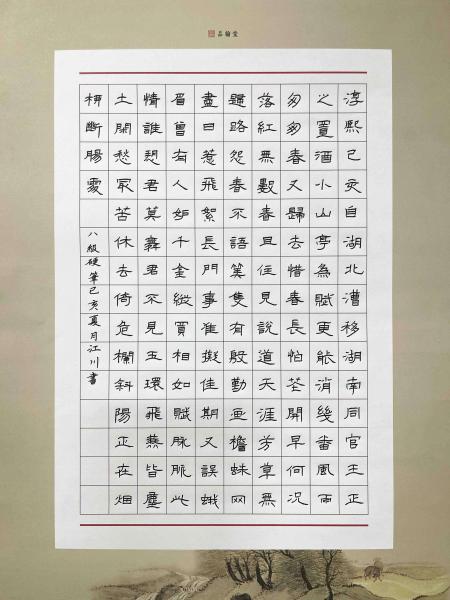 品翰堂
淳熙己亥自湖北漕移湖南同官王正
之置酒小山亭為賦更能消幾番風雨
匆匆春又歸去惜春長怕花開早何況
落紅無數春且住見說道天涯芳草無
歸路怨春不語算隻有殷勤畫檐蛛网
盡日惹飛絮長門事准擬佳期又誤蛾
眉曾有人妒千金縱買相如賦脉脈此
情誰愬君莫舞君不見玉環飛燕皆塵
土閑愁最苦休去倚危欄斜陽正在烟
柳斷腸處
八級硬筆己亥夏月江川書